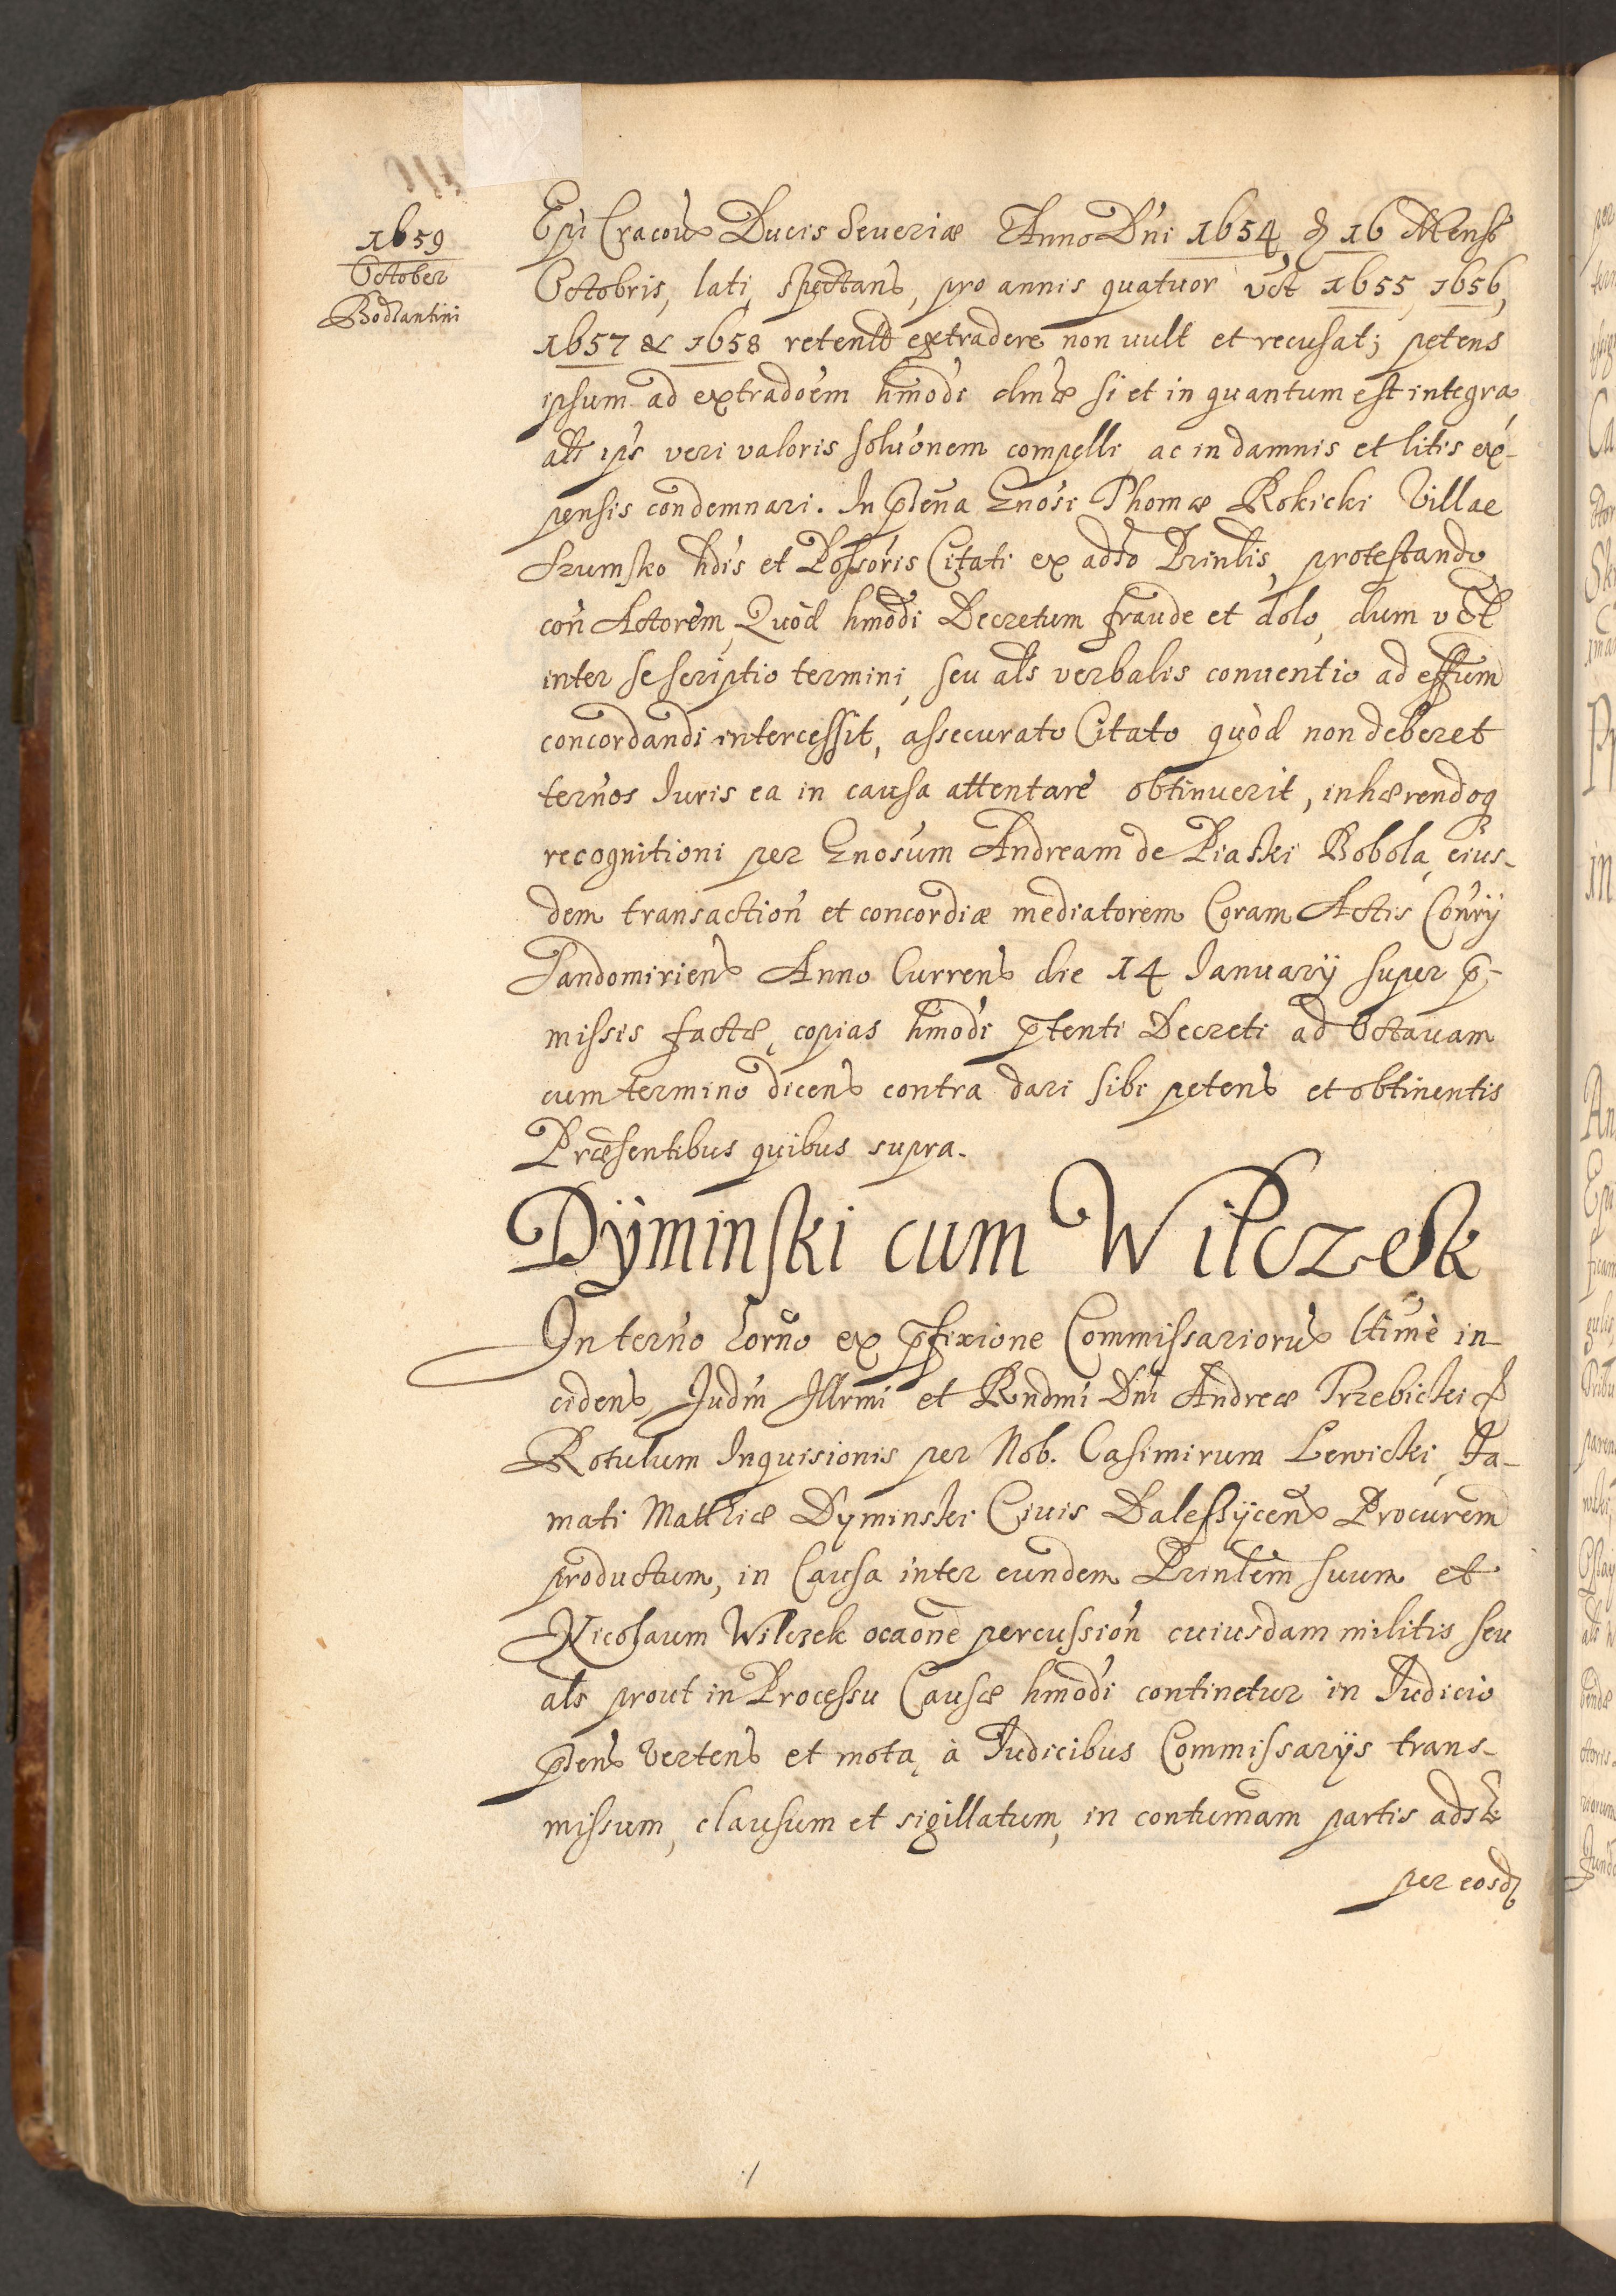 1659
October
Bodzantini
Epi Cracoviẽ Ducis Severiæ Anno Dńi 1654, d 16 Mense
Octobris, lati, spectans, pro annis quatuor vct 1655, 1656,
1657 & 1658 retentã extradere non vult et recusat; petens
ipsum ad extradoém hmódi dmæ si et in quantum est integra,
als ips veri valoris solvónem compelli, ac in damnis et litis ex-
pensis condemnari. In pñtia Gnósi Thomæ Rokicki Villae
Szumsko hdis et Possóris Citati ex adso Prinlis, protestando
coñ Actorém, Quòd hmódi Decretum fraude et dolo, dum vct
inter se scriptio termini, seu als verbalis conventio ad effum
concordandi intercessit, assecurato Citato quòd non deberet
terños Iuris ea in causa attentare obtinuerit, inhærendoq
recognitioni per Gnosum Andream de Piaski Bobola, eius-
dem transactioń et concordiæ mediatorem Coram Actis Cońrÿ
Sandomirieñ Anno Currenñ die 14 Ianuarÿ super p-
missis factæ, copias hmódi ptenti Decreti ad Octavam
cum termino dicenñ contra dari sibi petenñ et obtinentis
Præsentibus quibus supra.
Dÿminski cum Wilczek
In terńo hornó ex pfixione Commissarioruñ ltimè in-
cidenñ, Iudm Illrmi et Rndmi Dni Andreæ Trzebicki &
Rotulum Inquisionis per Nob. Casimirum Lewicki, Fa-
mati Mathiæ Dyminski Civis Dalessÿcenñ Procurem
productum, in Causa inter eundem Prinlem suum et
Nicolaum Wilczek ocaone percussioń cuiusdam militis seu
als prout in Processu Causæ hmódi continetur in Iudicio
pñenñ vertenñ et mota, à Iudicibus Commissarÿs trans-
missum, clausum et sigillatum, in contumam partis adsæ
per eosdq